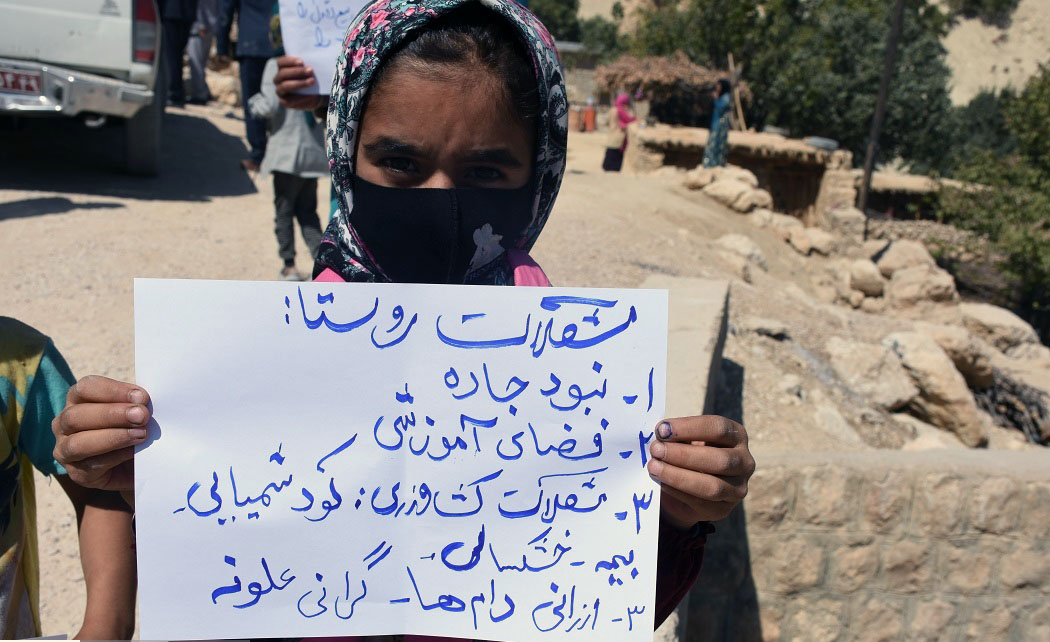 مشکلات روستا:
۱- نبود جاده
۲- فضای آموزشی
۳- مشکلات کشاورزی: کود شمیایی-
بیمه - خشکسالی
۳- ارزانی دام‌ها - گرانی علوفه